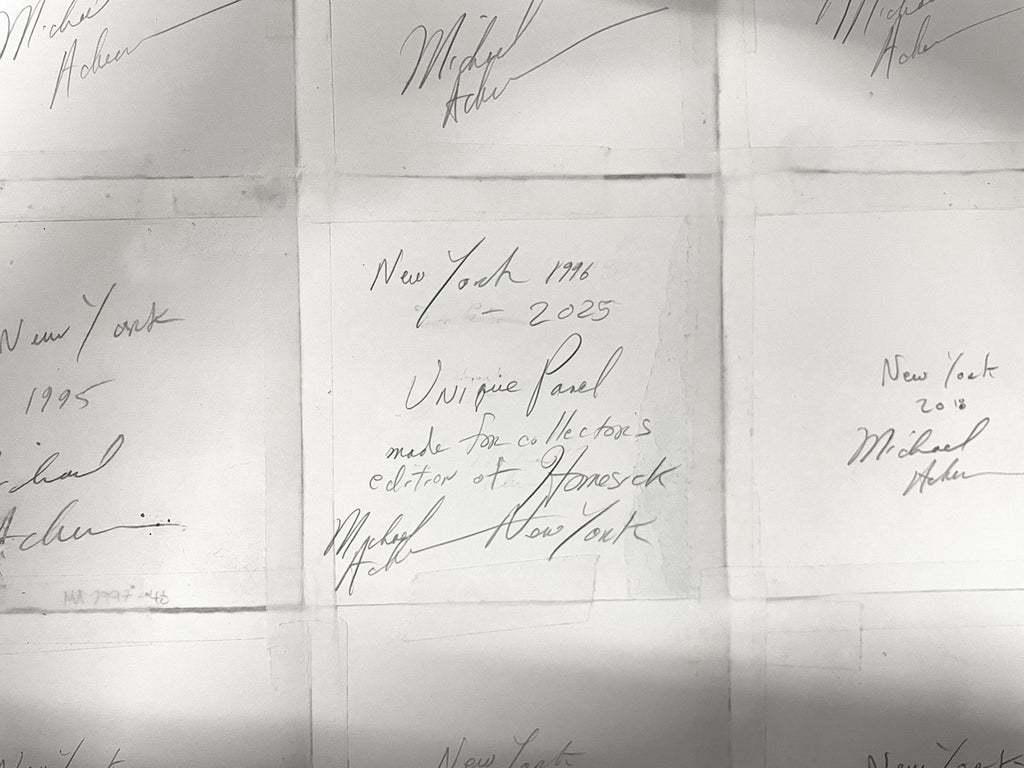 Michael
Acker
Michael
Acker
Michael
Acker
New York 1996
- 2025
Unique Panel
made for collector's
edition of Homesick
Michael New York
Ack
New York
1995
Michael
Acker
New York
2018
Michael
Acker
New York
New York
New York